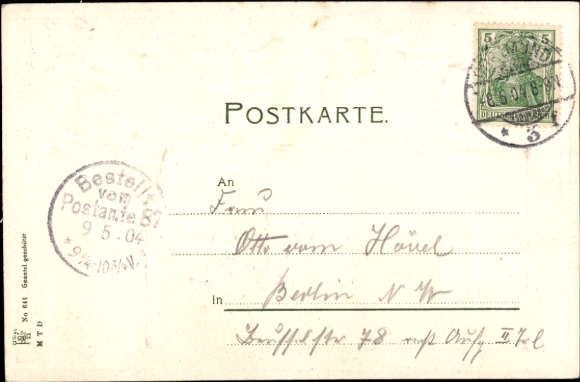 5 5
POSTKARTE.
Bestellt
vom
Postamte 87
9 5.04
*9¼-10¾V.*
An
Frau
Otto vom Hövel
in Berlin N W
78 Aufg II
No 641 Gesetzl geschützt
M T D